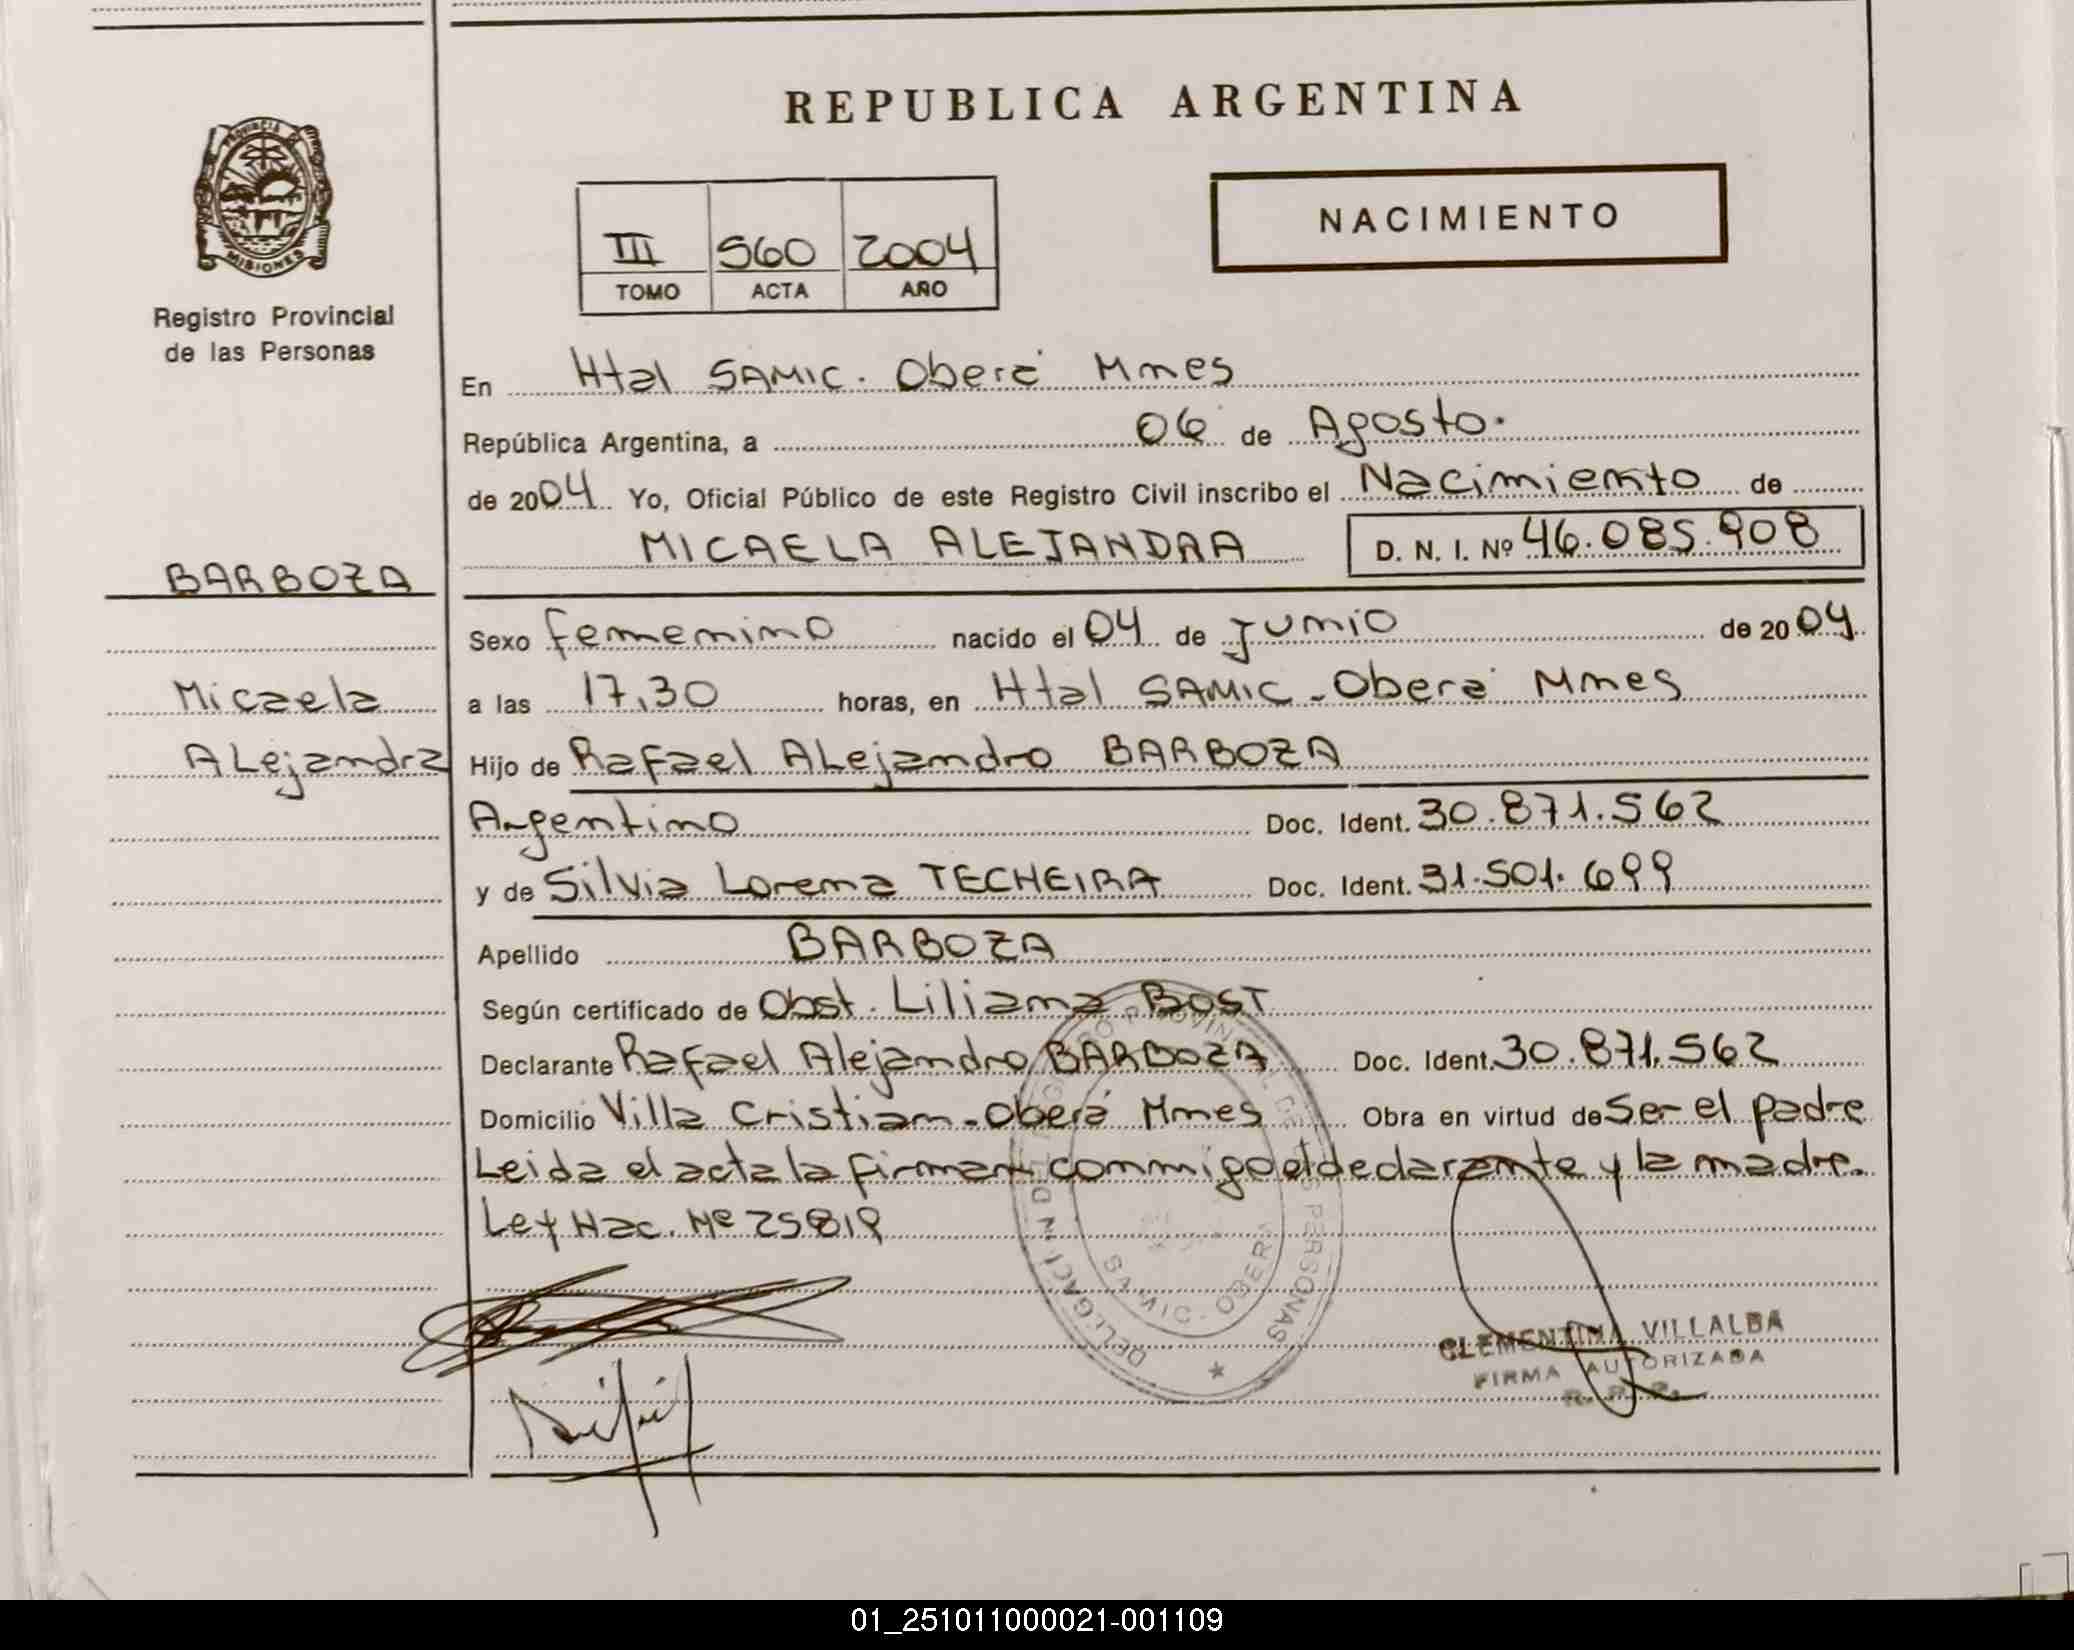 REPUBLICA ARGENTINA
PROVINCIA DE
MISIONES
Registro Provincial
de las Personas
NACIMIENTO
III 560 2004
TOMO ACTA AÑO
En Htal SAMIC. Oberá Mnes
República Argentina, a 06 de Agosto.
de 2004 Yo, Oficial Público de este Registro Civil inscribo el Nacimiento de
MICAELA ALEJANDRA D. N. I. Nº 46.085.908
BARBOZA
Micaela
Alejandra
Sexo femenino nacido el 04 de junio de 2004
a las 17,30 horas, en Htal SAMIC - Oberá Mnes
Hijo de Rafael Alejandro BARBOZA
Argentino Doc. Ident. 30.871.562
y de Silvia Lorena TECHEIRA Doc. Ident. 31.501.699
Apellido BARBOZA
Según certificado de Obst. Liliana BOST
Declarante Rafael Alejandro BARBOZA Doc. Ident. 30.871.562
Domicilio Villa Cristian - Oberá Mnes Obra en virtud de Ser el padre
Leida el acta la firman conmigo el declarante y la madre.
Ley Nac. Nº 25819
REGISTRO PROVINCIAL DE LAS PERSONAS
SAMIC - OBERA
CLEMENTINA VILLALBA
FIRMA AUTORIZADA
01_251011000021-001109